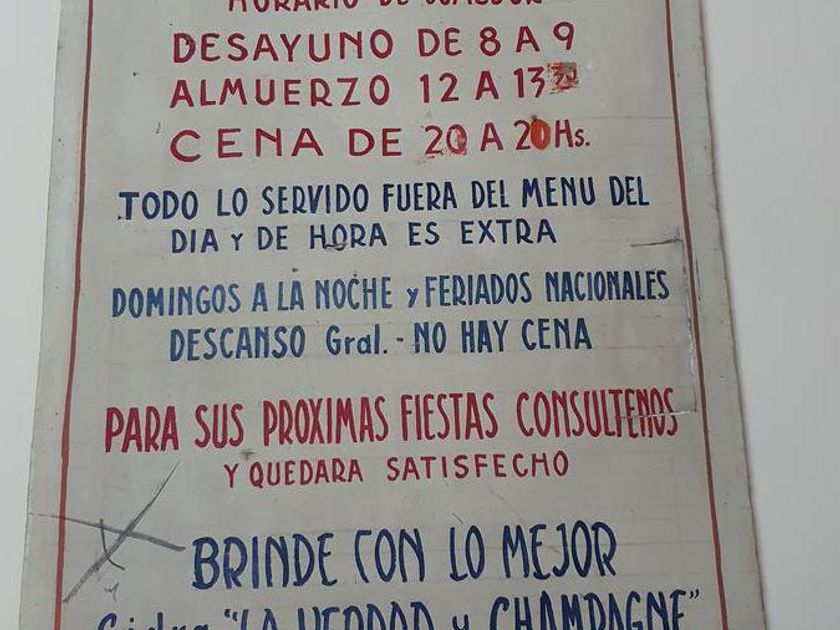 HORARIO DE COMEDOR
DESAYUNO DE 8 A 9
ALMUERZO 12 A 13 30
CENA DE 20 A 20 Hs.
TODO LO SERVIDO FUERA DEL MENU DEL
DIA Y DE HORA ES EXTRA
DOMINGOS A LA NOCHE y FERIADOS NACIONALES
DESCANSO Gral. - NO HAY CENA
PARA SUS PROXIMAS FIESTAS CONSULTENOS
Y QUEDARA SATISFECHO
BRINDE CON LO MEJOR
Sidra "LA VERDAD y CHAMPAGNE"